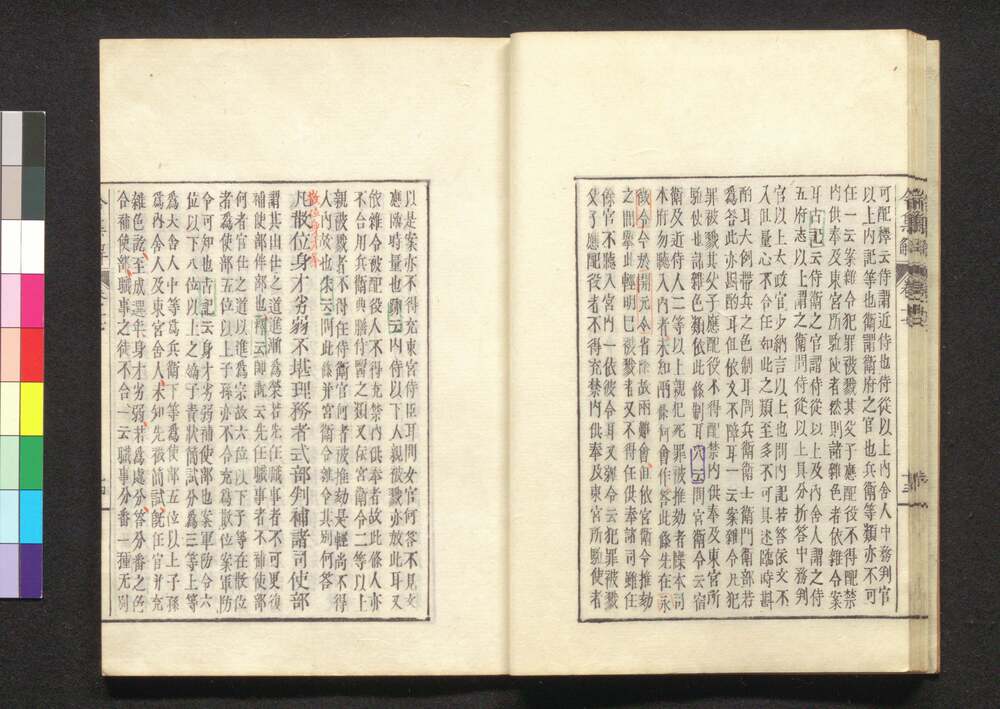 可配
云侍謂近侍也侍從以上內舍人中務判官
以上內記等也衛謂衛府之官也兵衛等類亦不可
任一云案雜令犯罪被戮其父子應配役不得配禁
內供奉及東宮所驅使者然則諸雜色者依雜令案
耳古記云侍衛之官謂侍從以上及內舍人謂之侍
五府志以上謂之衛問侍從以上具分折答中務判
官以上太政官少納言以上也問內記若答依文不
入但量心不合任如此之類至多不可具述臨時斟
酌耳大例帶兵之色制耳問兵衛衛士衛門衛部若
爲答此亦斟酌耳但依文不障耳一云案雜令凡犯
罪被戮其父子應配役不得配禁內供奉及東宮所
驅使也諸雜色類依此條制耳穴云問宮衛令云宿
衛及近侍人二等以上親犯死罪被推劾者牒本司
本府勿聽入內者未知兩條何會作答此條先在
散令令於開元令省除故兩難會但依宮衛令推劾
之間擧此輕明已被戮者又不得任供奉諸司雖任
餘官不聽入宮內一依彼令耳又雜令云犯罪被戮
父子應配役者不得充禁內供奉及東宮所驅使者
以是案亦不得充東宮侍臣耳問女官何答不見文
應臨時量也跡云內侍以下人親被戮亦放此耳又
依雜令被配役人不得充禁內供奉者故此條人亦
不合用兵衛典膳侍醫之類又保宮衛令二等以上
親被戮者不得任侍衛官何者被推劾是輕尚不得
人內故也朱云問此條并宮衛令雜令其別何答
凡散位身才劣弱不堪理務者式部判補諸司使部
謂其出仕之道進漸爲榮若先任職事者不可更復
補使部伴部也釋云師說云先任職事者不補使部
何者官仕之道以進爲宗故六位以下子等在散位
者爲使部五位以上子孫亦不合充爲散位案軍防
令可知也古記云身才劣弱補使部也案軍防令六
位以下八位以上之嫡子責狀簡試分爲三等上等
爲大舍人中等爲兵衛下等爲使部五位以上子孫
爲內舍人及東宮舍人未知先被簡試既任官并充
雜色訖至成選年身才劣弱若爲處分答分番之色
合補使部職事之徒不合一云職事分番一種无別